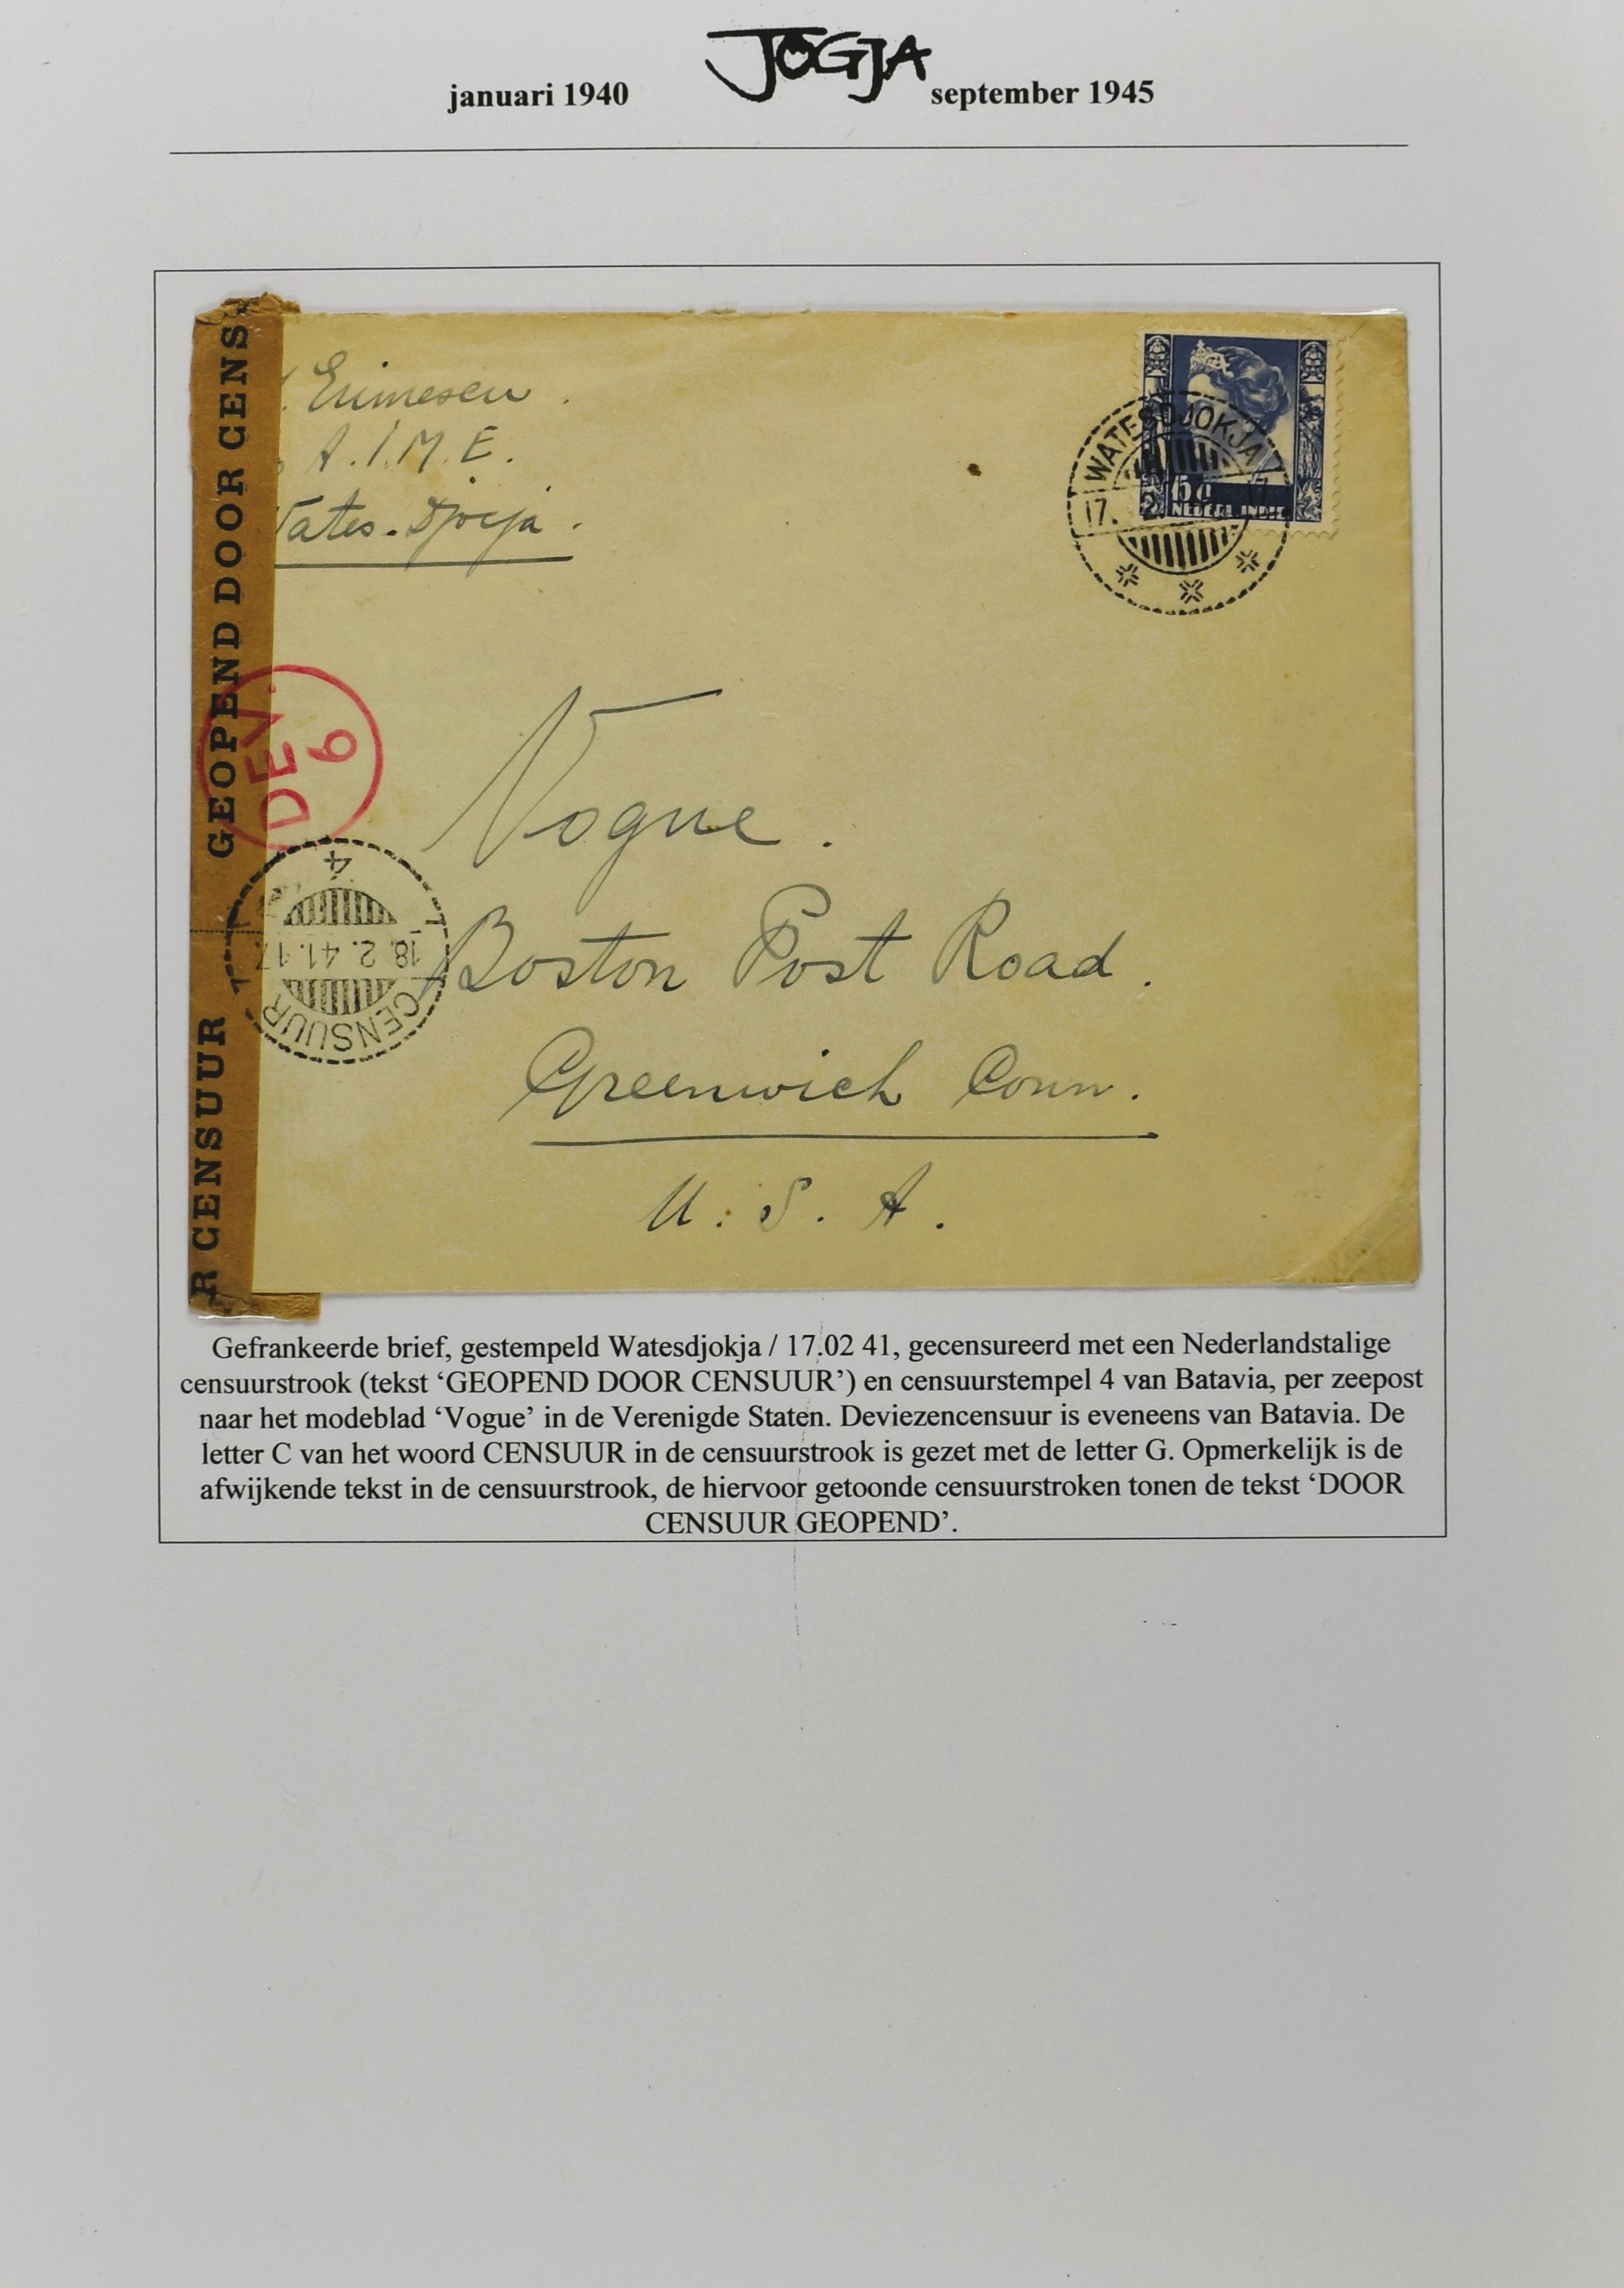 JOGJA
januari 1940 september 1945
GEOPEND DOOR CENS
R CENSUUR
Erimescu.
A.I.M.E.
Wates-Djocja.
WATESDJOKJA
17. 2
15 c
NEDERL. INDIE
DEV.
6
4
18. 2. 41. 17
CENSUUR
Vogue.
Boston Post Road.
Greenwich Conn.
U. S. A.
Gefrankeerde brief, gestempeld Watesdjokja / 17.02 41, gecensureerd met een Nederlandstalige
censuurstrook (tekst ‘GEOPEND DOOR CENSUUR’) en censuurstempel 4 van Batavia, per zeepost
naar het modeblad ‘Vogue’ in de Verenigde Staten. Deviezencensuur is eveneens van Batavia. De
letter C van het woord CENSUUR in de censuurstrook is gezet met de letter G. Opmerkelijk is de
afwijkende tekst in de censuurstrook, de hiervoor getoonde censuurstroken tonen de tekst ‘DOOR
CENSUUR GEOPEND’.